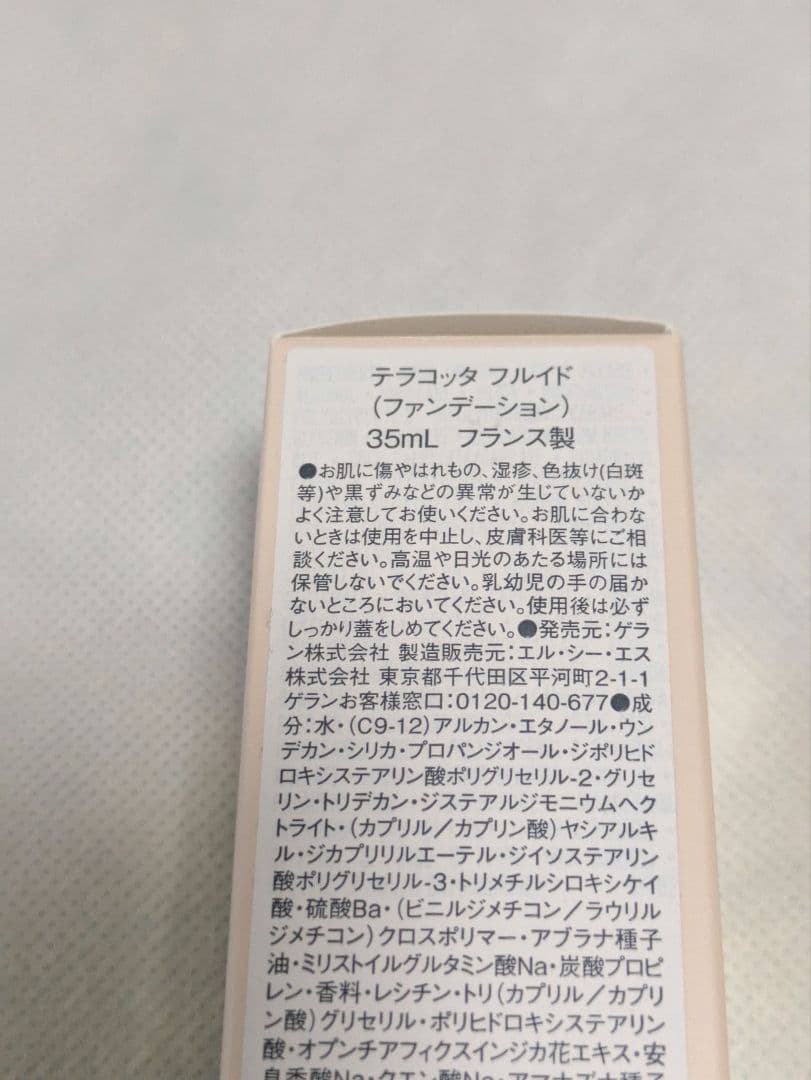 テラコッタ フルイド
（ファンデーション）
35mL フランス製
●お肌に傷やはれもの、湿疹、色抜け(白斑
等)や黒ずみなどの異常が生じていないか
よく注意してお使いください。お肌に合わな
いときは使用を中止し、皮膚科医等にご相
談ください。高温や日光のあたる場所には
保管しないでください。乳幼児の手の届か
ないところにおいてください。使用後は必ず
しっかり蓋をしめてください。●発売元：ゲラ
ン株式会社 製造販売元：エル・シー・エス
株式会社 東京都千代田区平河町2-1-1
ゲランお客様窓口：0120-140-677●成
分：水・（C9-12）アルカン・エタノール・ウン
デカン・シリカ・プロパンジオール・ジポリヒド
ロキシステアリン酸ポリグリセリル-2・グリセ
リン・トリデカン・ジステアルジモニウムヘク
トライト・（カプリル／カプリン酸）ヤシアルキ
ル・ジカプリリルエーテル・ジイソステアリン
酸ポリグリセリル-3・トリメチルシロキシケイ
酸・硫酸Ba・（ビニルジメチコン／ラウリル
ジメチコン）クロスポリマー・アブラナ種子
油・ミリストイルグルタミン酸Na・炭酸プロピ
レン・香料・レシチン・トリ（カプリル／カプリ
ン酸）グリセリル・ポリヒドロキシステアリン
酸・オプンチアフィクスインジカ花エキス・安
息香酸Na・クエン酸Na・アマナズナ種子